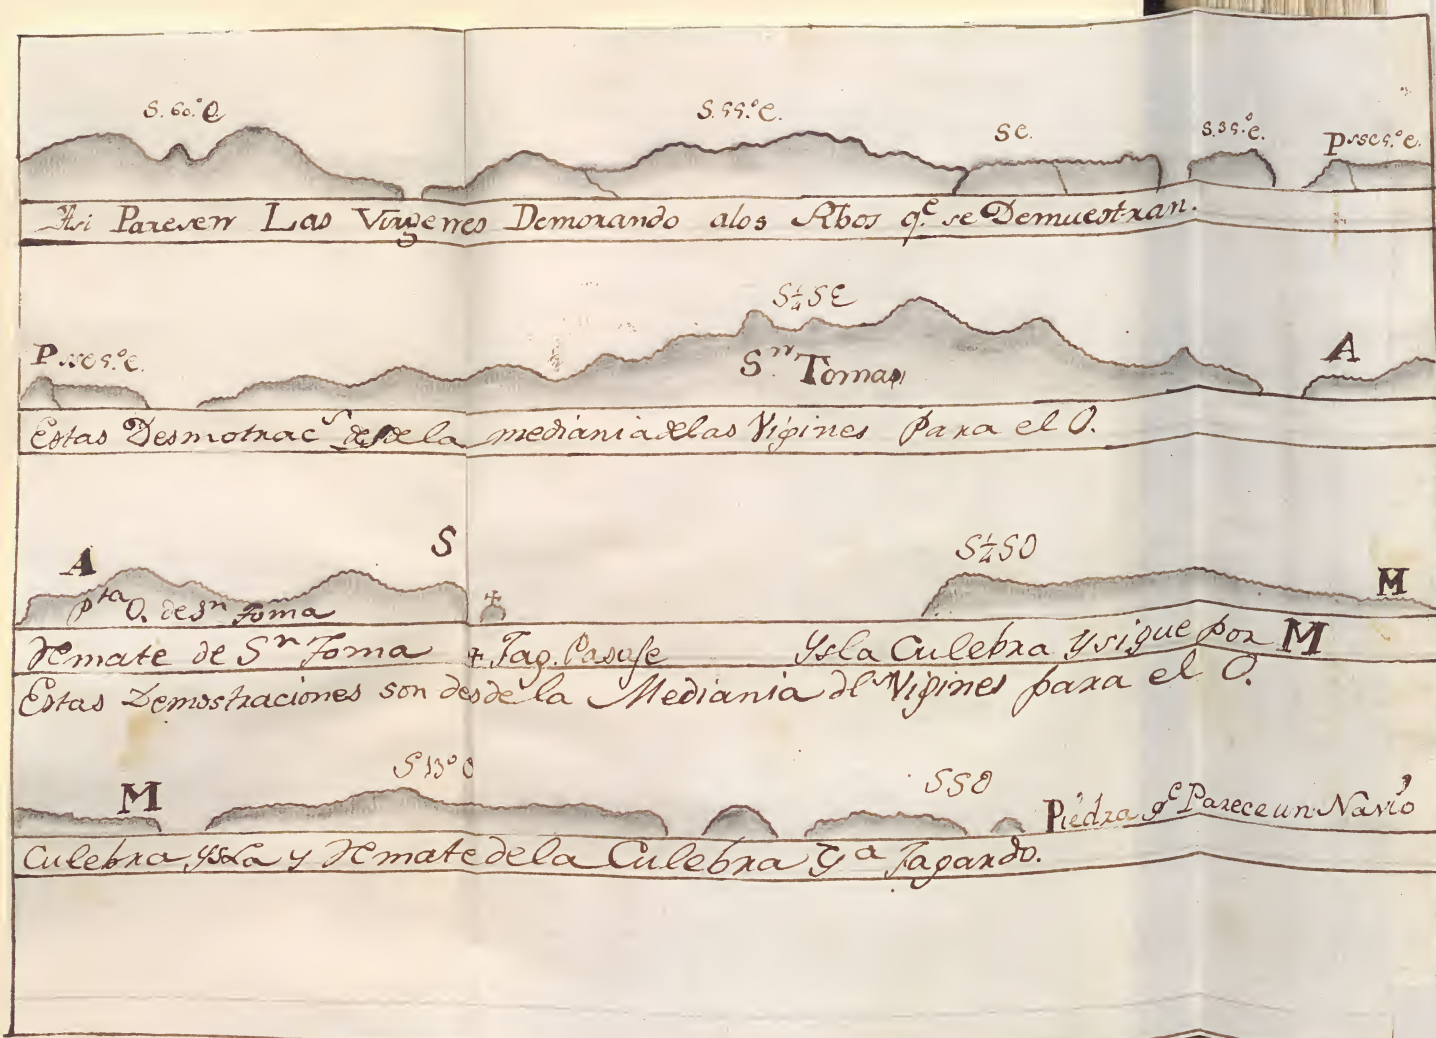 S. 60.° O. S. 55.° e. Se. S. 35.° e. P sse 5.° e.
Asi Paresen Las Virgenes Demorando alos Rbos q.e se Demuestran.
S¼SE
P sse 5.° e. S.n Tomas A
Estas Desmotrac.s desde la mediania delas Vigines Para el O.
A S S¼SO M
Pta O. de Sn Toma
Remate de Sn Toma + Ysla Culebra Y sigue por M
Estas Demostraciones son desde la Mediania dl Vigines para el O.
M S 13° O SSO Piedra q.e Parece un Navio
Culebra Ysla y Remate de la Culebra Y a Fagardo.